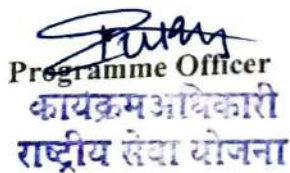 Programme Officer
कार्यक्रम अधिकारी
राष्ट्रीय सेवा योजना